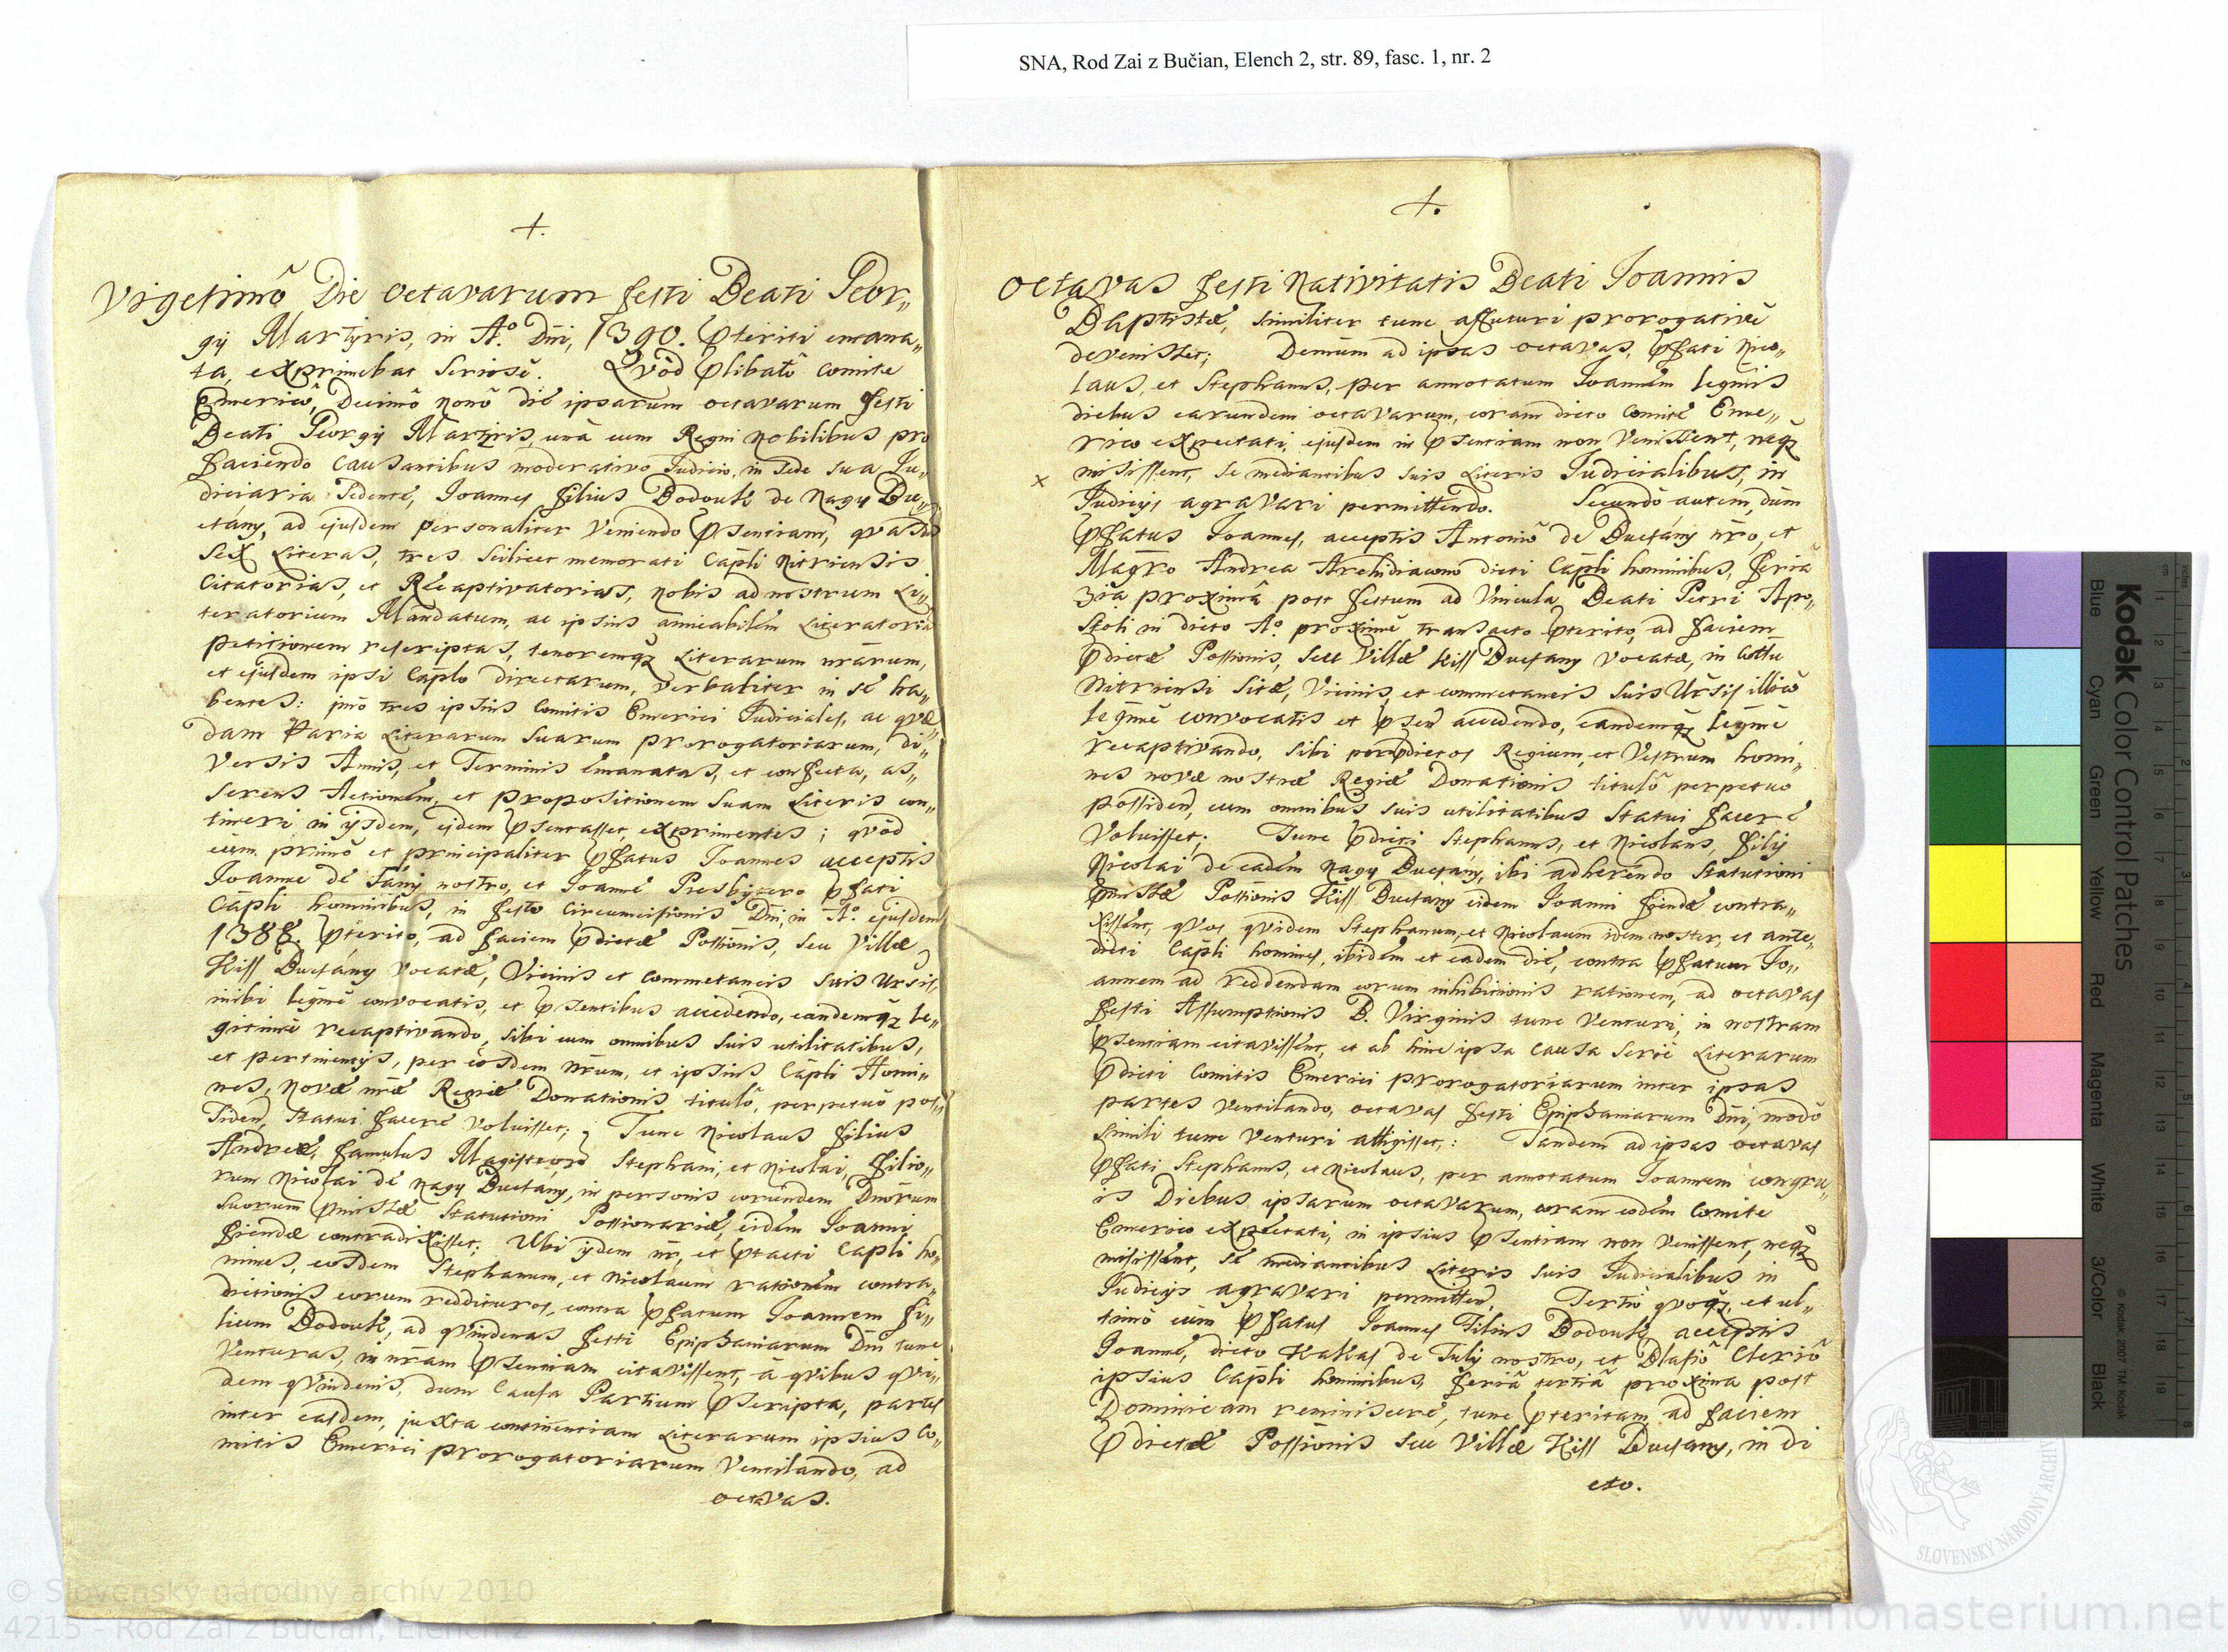 SNA, Rod Zai z Bučian, Elench 2, str. 89, fasc. 1, nr. 2
+.
Vigesimô Die octavarum festi Beati Geor„
gÿ Martÿris, in A.º Dni, 1390. pteriti emana„
ta, exprimebat Seriosè. Qvòd plibatô Comite
Emericô, Decimô nonô dië ipsarum octavarum festi
Beati Georgÿ Martÿris, unà cum Regni Nobilibus pro
faciendo Causantibus moderativo Judicio, in Sede Sua Ju„
diciaria Sedente, Joannes filius Bodouk de Nagy Bu„
csány, ad ejusdem personaliter Veniendo psentiam,
Sex Literas, tres Scilicet memorati Capli Nitriensis
Citatorias, et Recaptivatorias, nobis ad nostrum Li„
teratorium Mandatum, ac ipsius amicabilem Literatoria
petitionem rescriptas, tenoremqz Literarum nrarum,
et ejusdem ipsi Caplo directarum, verbaliter in sè ha„
bentes: imò tres ipsius Comitis Emerici Judiciales, ac qvæ„
dam Paria Literarum Suarum prorogatoriarum, di„
versis Annis, et Terminis emanatas, et confecta, as„
serens Actionem, et propositionem Suam Literis con„
tineri in ijsdem, ejdem psentasset, exprimentes; qvòd
cùm primò et principaliter pfatus Joannes acceptis
Joanne de Tánÿ nostro, et Joanne Presbÿtero pfati
Capli hominibus, in festo Circumcisionis Dni, in A.º ejusdem
1388. pterito, ad faciem pdictæ Possionis, Seu Villæ
Kiss Bucsány vocatæ, Vicinis et Commetaneis Suis Ursis,
inibi legmè convocatis, et psentibus accedendo, eandemqz le„
gitimè recaptivando, Sibi cum omnibus Suis utilitatibus,
et pertinentÿs, per eosdem nrum, et ipsius Capli Homi„
nes, Novæ nræ Regiæ Donationis titulô, perpetuò pos„
siden, Statui facere voluisset; Tunc Nicolaus filius
Andreæ, famulus Stephani, et Nicolai, filio„
rum Nicolai de Nagy Bucsány, in personis eorundem Dnorum
Suorum pmissæ Statutioni Possionariæ, eidem Joanni
fiendæ contradixisset; Ubi ÿdem nr, et ptacti Capli ho„
mines, eosdem Stephanum, et Nicolaum rationem contra„
dictionis eorum reddituros, contra pfatum Joannem fi„
lium Bodouk, ad qvindenas festi Epiphaniarum Dni tunc
Venturas, in nram psentiam citavissent, à qvibus qvi„
dem qvindenis, dum Causa Partium pscripta, partes
inter easdem, juxta continentiam Literarum ipsius Co„
mitis Emerici prorogatoriarum Ventilando, ad
octavas.
+.
Octavas festi Nativitatis Beati Joannis
Baptistæ, Similiter tunc affuturi prorogativè
devenisset; Demùm ad ipsas octavas, pfati Nico„
laus, et Stephanus, per annotatum Joannem legmis
diebus earundem octavarum, coram dicto Comite Eme„
rico expectati, ejusdem in psentiam non Venissent, neqz
x misissent, se mediantibus Suis Literis Judicialibus, in
Judicÿs agravari permittendo. Secundò autem, dùm
pfatus Joannes, acceptis Antoniô de Bucsány nro, et
Magro Andrea Archidiacono dicti Capli hominibus, feria
3ia proximâ post festum ad Vincula Beati Petri Apo„
stoli in dicto A.º proximè transacto pterito, ad faciem
pdictæ Possionis, Seu Villæ Kiss Bucsany vocatæ, in Cottu
Nitriensi Sitæ, Vicinis, et commetaneis Suis Ursis illicò
legmè convocatis et psen accedendo, eandemqz legmè
recaptivando, Sibi per pdictos Regium, et Vestrum homi„
nes novæ nostræ Regiæ Donationis titulô perpetuo
possiden, cum omnibus Suis utilitatibus Statui facere
Voluisset; Tunc pdicti Stephanus, et Nicolaus, filÿ
Nicolai de eadem Nagy Bucsány, ibi adherendo Statutioni
pmissæ Possionis Kiss Bucsány eidem Joanni fiendæ contra„
xissent, qvos qvidem Stephanum, et Nicolaum idem noster, et ante„
dicti Capli homines, ibidem et eadem die, contra pfatum Jo„
annem ad reddendam eorum inhibitionis rationem, ad octavas
festi Assumptionis B. Virginis tunc Venturi, in nostram
psentiam citavissent, et ab hinc ipsa Causa Seriè Literarum
pdicti Comitis Emerici prorogatoriarum inter ipsas
partes ventilando, octavas festi Epiphaniarum Dni, modò
Simili tunc Venturi attigisset; Tandem ad ipsas octavas
pfati Stephanus, et Nicolaus, per annotatum Joannem congru„
is Diebus ipsarum octavarum, coram eodem Comite
Emerico expectati, in ipsius psentiam non Venissent, neqz
misissent, sè mediantibus Literis Suis Judicialibus in
Judicÿs agravari permitten. Tertiò qvoqz, et ul„
timò cùm pfatus Joannes Filius Bodouk, acceptis
Joanne, dicto Kakas de Tulÿ nostro, et Blasio Clericô
ipsius Capli hominibus, feriâ tertiâ proxima post
Dominicam reminiscere, tunc pteritam ad faciem
pdictæ Possionis Seu Villæ Kiss Bucsany, in di
cto.
Kodak Color Control Patches
Blue Cyan Green Yellow Red Magenta White 3/Color Black
© Kodak, 2007 TM: Kodak
SLOVENSKÝ NÁRODNÝ ARCHÍV
© Slovenský národný archív 2010
4215 - Rod Zai z Bučian, Elench 2
www.monasterium.net